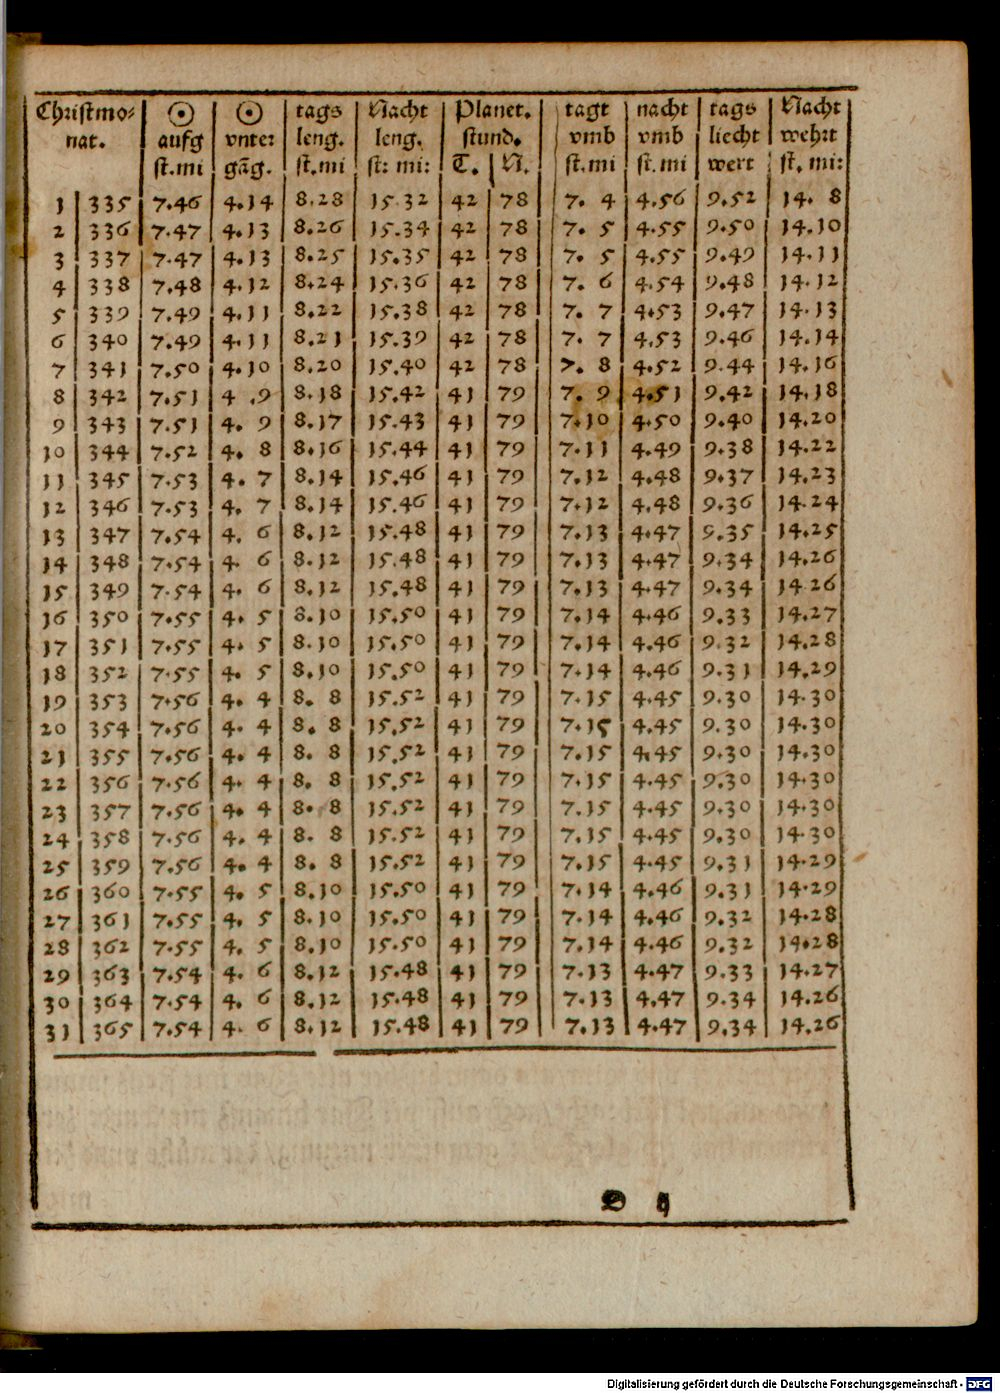 Christmo⸗ ☉ ☉ tags Nacht Planet. tagt nacht tags Nacht
nat. aufg vnter leng. leng. stund. vmb vmb liecht wehrt
st.mi gãg. st.mi st: mi: T. N. st.mi st.mi wert st. mi:
1 335 7.46 4.14 8.28 15.32 42 78 7. 4 4.56 9.52 14. 8
2 336 7.47 4.13 8.26 15.34 42 78 7. 5 4.55 9.50 14.10
3 337 7.47 4.13 8.25 15.35 42 78 7. 5 4.55 9.49 14.11
4 338 7.48 4.12 8.24 15.36 42 78 7. 6 4.54 9.48 14.12
5 339 7.49 4.11 8.22 15.38 42 78 7. 7 4.53 9.47 14.13
6 340 7.49 4.11 8.21 15.39 42 78 7. 7 4.53 9.46 14.14
7 341 7.50 4.10 8.20 15.40 42 78 7. 8 4.52 9.44 14.16
8 342 7.51 4 .9 8.18 15.42 41 79 7. 9 4.51 9.42 14.18
9 343 7.51 4. 9 8.17 15.43 41 79 7.10 4.50 9.40 14.20
10 344 7.52 4. 8 8.16 15.44 41 79 7.11 4.49 9.38 14.22
11 345 7.53 4. 7 8.14 15.46 41 79 7.12 4.48 9.37 14.23
12 346 7.53 4. 7 8.14 15.46 41 79 7.12 4.48 9.36 14.24
13 347 7.54 4. 6 8.12 15.48 41 79 7.13 4.47 9.35 14.25
14 348 7.54 4. 6 8.12 15.48 41 79 7.13 4.47 9.34 14.26
15 349 7.54 4. 6 8.12 15.48 41 79 7.13 4.47 9.34 14.26
16 350 7.55 4. 5 8.10 15.50 41 79 7.14 4.46 9.33 14.27
17 351 7.55 4. 5 8.10 15.50 41 79 7.14 4.46 9.32 14.28
18 352 7.55 4. 5 8.10 15.50 41 79 7.14 4.46 9.31 14.29
19 353 7.56 4. 4 8. 8 15.52 41 79 7.15 4.45 9.30 14.30
20 354 7.56 4. 4 8. 8 15.52 41 79 7.15 4.45 9.30 14.30
21 355 7.56 4. 4 8. 8 15.52 41 79 7.15 4.45 9.30 14.30
22 356 7.56 4. 4 8. 8 15.52 41 79 7.15 4.45 9.30 14.30
23 357 7.56 4. 4 8. 8 15.52 41 79 7.15 4.45 9.30 14.30
24 358 7.56 4. 4 8. 8 15.52 41 79 7.15 4.45 9.30 14.30
25 359 7.56 4. 4 8. 8 15.52 41 79 7.15 4.45 9.31 14.29
26 360 7.55 4. 5 8.10 15.50 41 79 7.14 4.46 9.31 14.29
27 361 7.55 4. 5 8.10 15.50 41 79 7.14 4.46 9.32 14.28
28 362 7.55 4. 5 8.10 15.50 41 79 7.14 4.46 9.32 14.28
29 363 7.54 4. 6 8.12 15.48 41 79 7.13 4.47 9.33 14.27
30 364 7.54 4. 6 8.12 15.48 41 79 7.13 4.47 9.34 14.26
31 365 7.54 4. 6 8.12 15.48 41 79 7.13 4.47 9.34 14.26
D ij
Digitalisierung gefördert durch die Deutsche Forschungsgemeinschaft - DFG